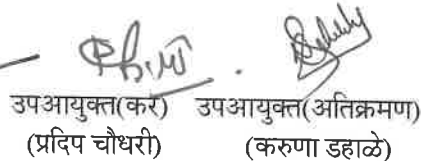 उपआयुक्त(कर) उपआयुक्त(अतिक्रमण)
(प्रदिप चौधरी) (करुणा डहाळे)